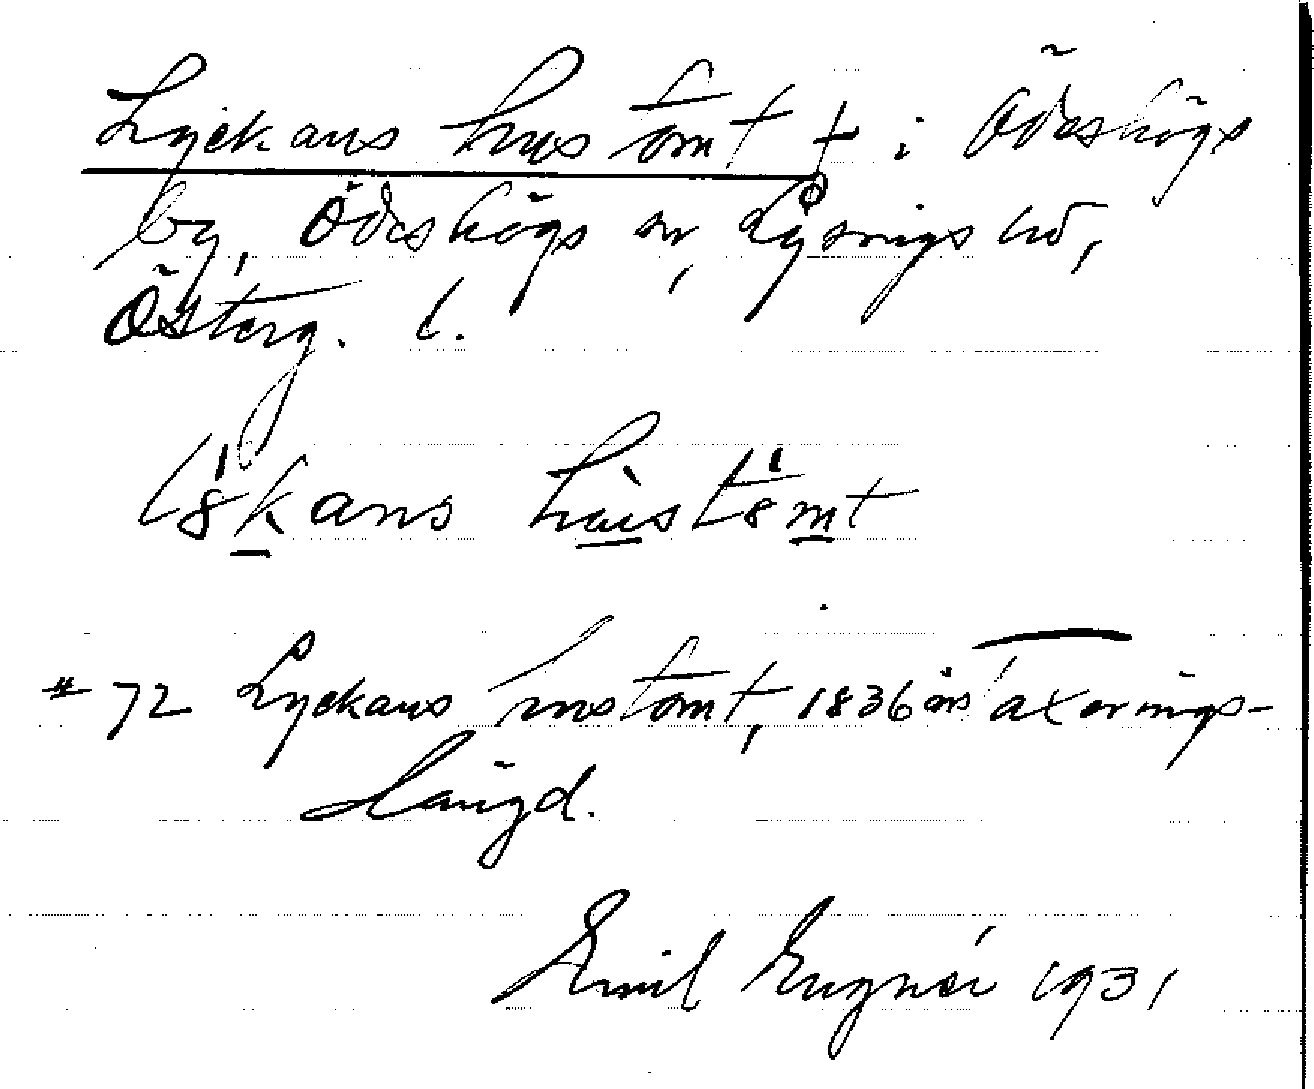 Lyckans hustomt † i Ödeshögs
by, Ödeshögs sn, Lysings hd,
Österg. l.
l8́kans hùst8́mt
# 72 Lyckans hustomt, 1836 års taxerings-
längd.
Emil 1931